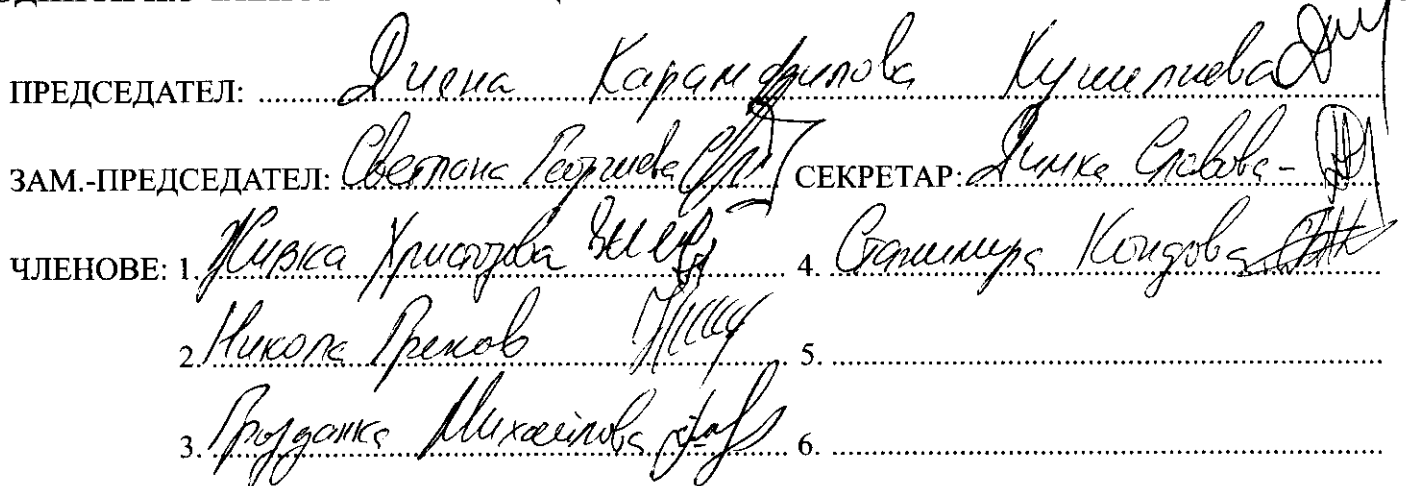 ПРЕДСЕДАТЕЛ: Диана Карамфилова
ЗАМ.-ПРЕДСЕДАТЕЛ: Светлана Георгиева СЕКРЕТАР: Димка Славова -
ЧЛЕНОВЕ: 1. Живка Христозова 4. Станимира Кондова
2. Никола Греков 5.
3. Грозданка Михайлова 6.